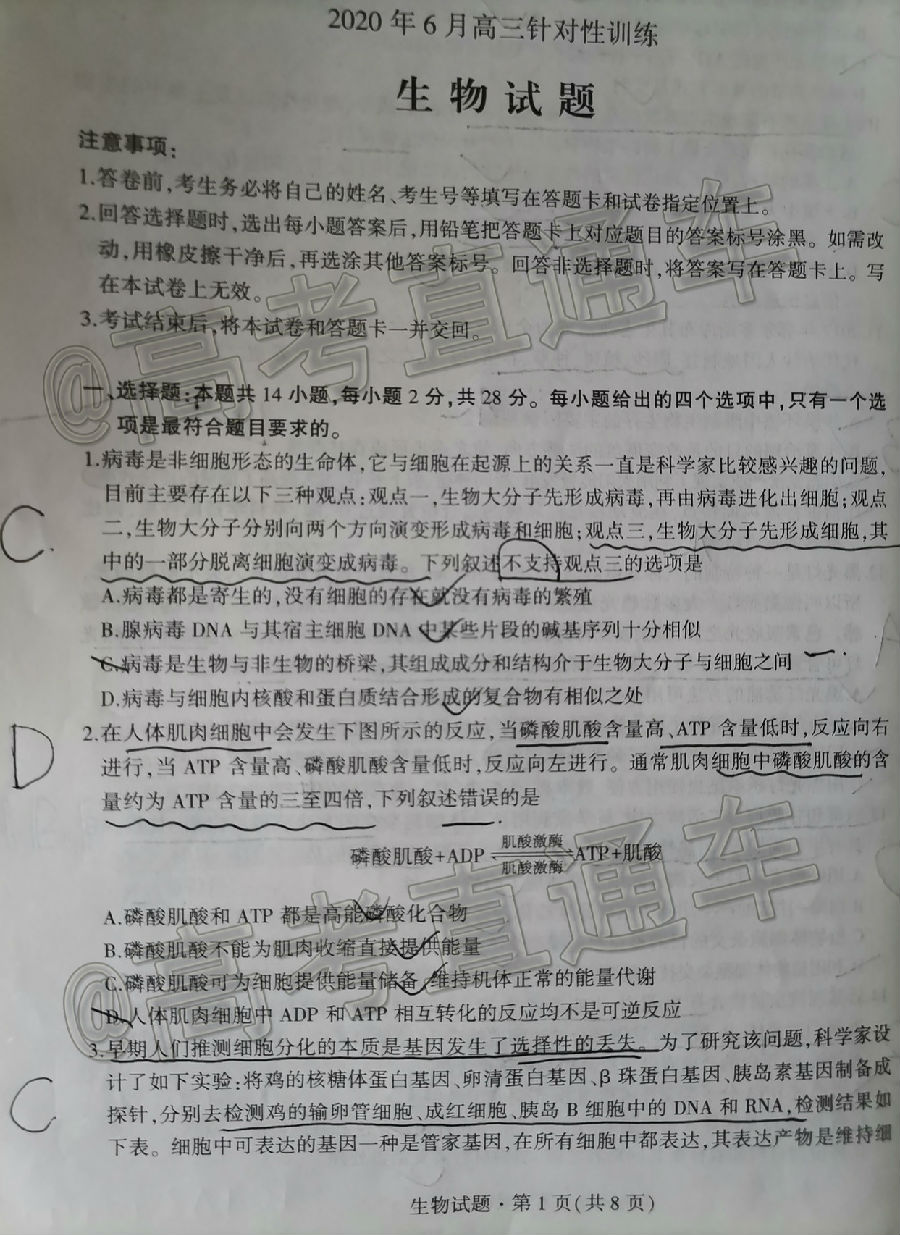 2020年6月高三针对性训练
生物试题
注意事项:
1.答卷前,考生务必将自己的姓名、考生号等填写在答题卡和试卷指定位置上。
2.回答选择题时,选出每小题答案后,用铅笔把答题卡上对应题目的答案标号涂黑。如需改
动,用橡皮擦干净后,再选涂其他答案标号。回答非选择题时,将答案写在答题卡上。写
在本试卷上无效。
3.考试结束后,将本试卷和答题卡一并交回。
一、选择题:本题共14小题,每小题2分,共28分。每小题给出的四个选项中,只有一个选
项是最符合题目要求的。
1.病毒是非细胞形态的生命体,它与细胞在起源上的关系一直是科学家比较感兴趣的问题,
目前主要存在以下三种观点:观点一,生物大分子先形成病毒,再由病毒进化出细胞;观点
C.
二,生物大分子分别向两个方向演变形成病毒和细胞;观点三,生物大分子先形成细胞,其
中的一部分脱离细胞演变成病毒。下列叙述不支持观点三的选项是
A.病毒都是寄生的,没有细胞的存在就没有病毒的繁殖
B.腺病毒DNA与其宿主细胞DNA中某些片段的碱基序列十分相似
C.病毒是生物与非生物的桥梁,其组成成分和结构介于生物大分子与细胞之间
D.病毒与细胞内核酸和蛋白质结合形成的复合物有相似之处
D
2.在人体肌肉细胞中会发生下图所示的反应,当磷酸肌酸含量高、ATP含量低时,反应向右
进行,当ATP含量高、磷酸肌酸含量低时,反应向左进行。通常肌肉细胞中磷酸肌酸的含
量约为ATP含量的三至四倍,下列叙述错误的是
肌酸激酶
磷酸肌酸+ADP⇌ATP+肌酸
肌酸激酶
A.磷酸肌酸和ATP都是高能磷酸化合物
B.磷酸肌酸不能为肌肉收缩直接提供能量
C.磷酸肌酸可为细胞提供能量储备,维持机体正常的能量代谢
D.人体肌肉细胞中ADP和ATP相互转化的反应均不是可逆反应
3.早期人们推测细胞分化的本质是基因发生了选择性的丢失。为了研究该问题,科学家设
C
计了如下实验:将鸡的核糖体蛋白基因、卵清蛋白基因、β珠蛋白基因、胰岛素基因制备成
探针,分别去检测鸡的输卵管细胞、成红细胞、胰岛B细胞中的DNA和RNA,检测结果如
下表。细胞中可表达的基因一种是管家基因,在所有细胞中都表达,其表达产物是维持细
生物试题·第1页(共8页)
@高考直通车
@高考直通车